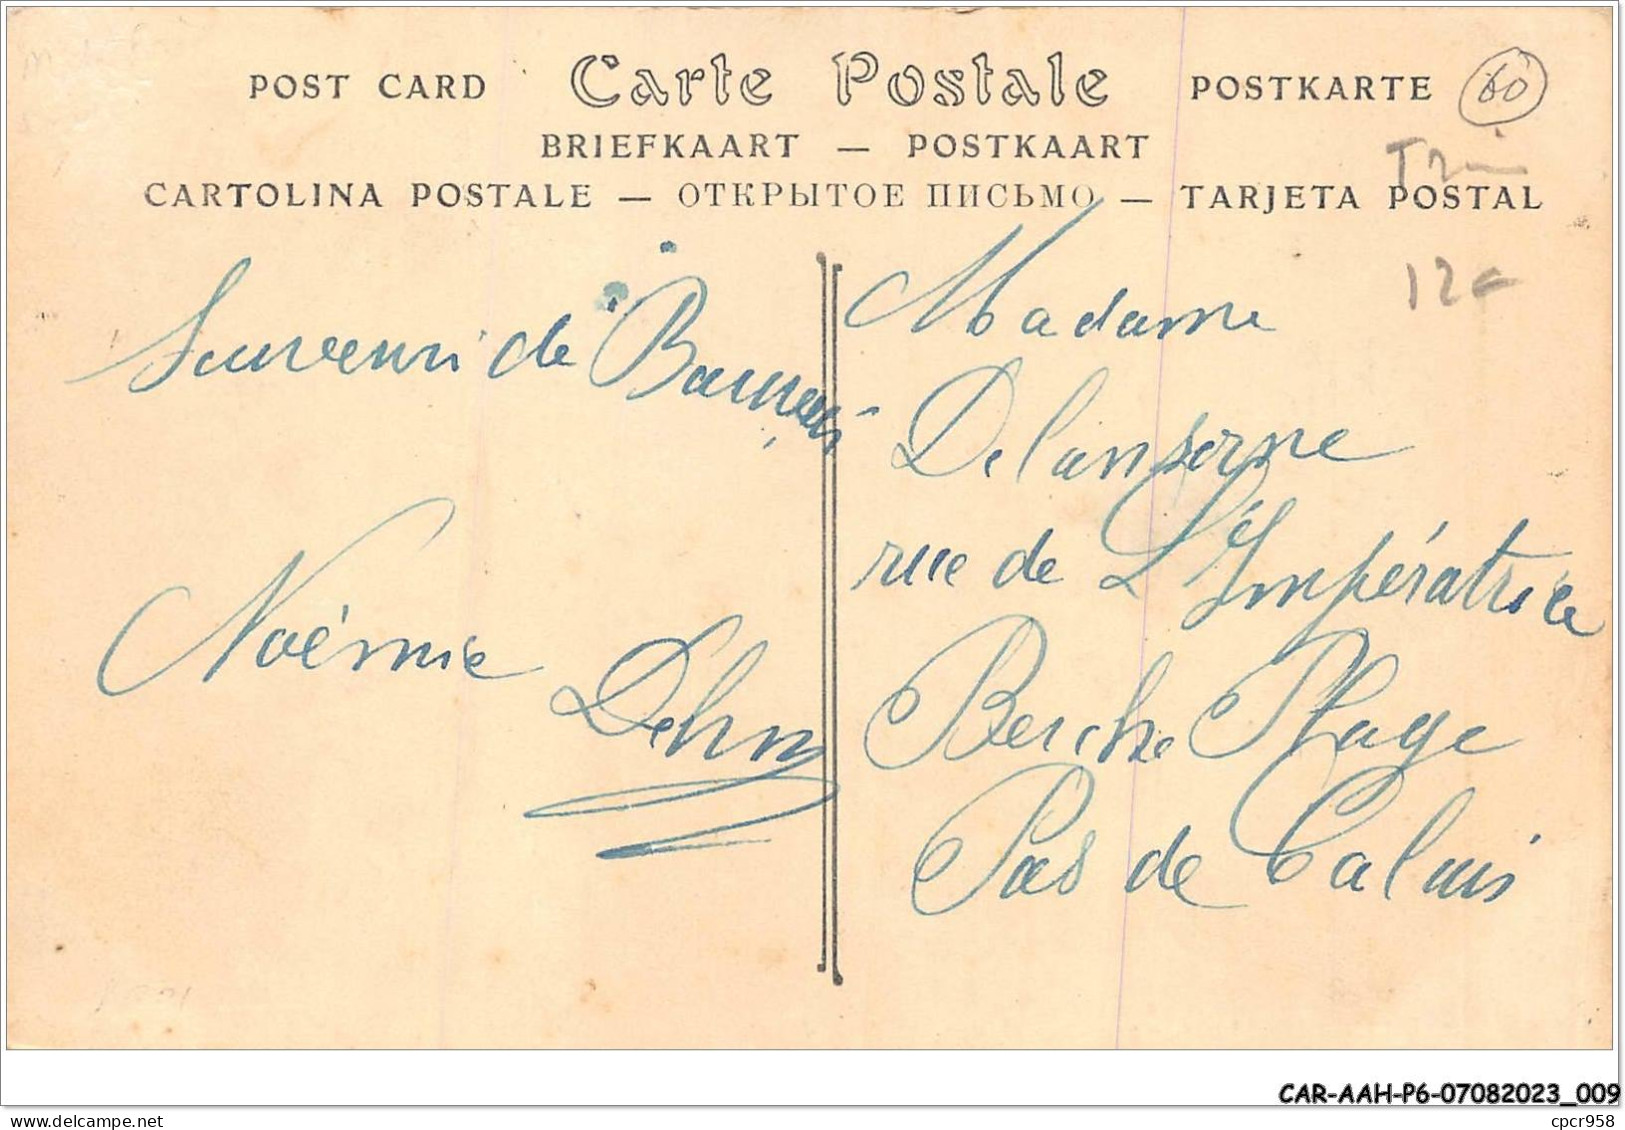 POST CARD Carte Postale POSTKARTE 60
BRIEFKAART — POSTKAART
CARTOLINA POSTALE — ОТКРЫТОЕ ПИСЬМО — TARJETA POSTAL
12€
Souvenir de
Noémie
Madame
Delanserne
rue de L'Impératrice
Berche Plage
Pas de Calais
CAR-AAH-P6-07082023_009
delcampe.net
cpcr958